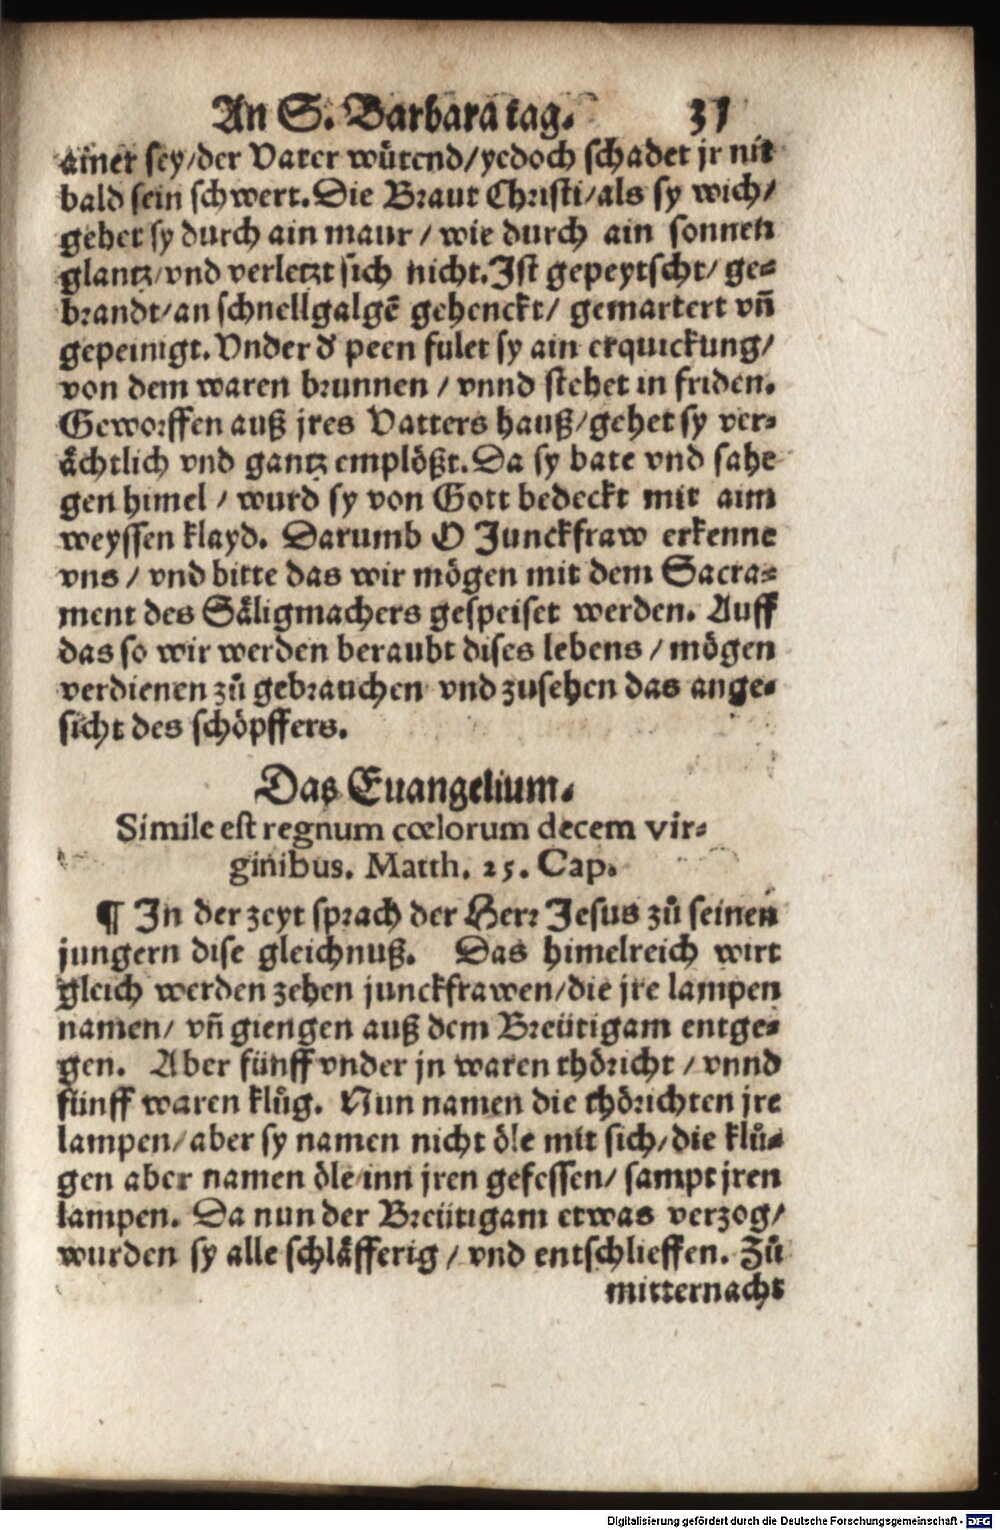 An S. Barbara tag. 31
ainer sey/der Vater wütend/yedoch schadet jr nit
bald sein schwert. Die Braut Christi/als sy wich/
gehet sy durch ain maur / wie durch ain sonnen
glantz/vnd verletzt sich nicht. Ist gepeytscht/ ge-
brandt/an schnellgalgē gehenckt/ gemartert vñ
gepeinigt. Vnder d' peen fület sy ain erquickung/
von dem waren brunnen / vnnd stehet in friden.
Geworffen auß jres Vatters hauß/gehet sy ver-
ächtlich vnd gantz emplößt. Da sy bate vnd sahe
gen himel / wurd sy von Gott bedeckt mit aim
weyssen klayd. Darumb O Junckfraw erkenne
vns / vnd bitte das wir mögen mit dem Sacra-
ment des Säligmachers gespeiset werden. Auff
das so wir werden beraubt dises lebens / mögen
verdienen zů gebrauchen vnd zusehen das ange-
sicht des schöpffers.
Das Euangelium.
Simile est regnum cœlorum decem vir-
ginibus. Matth. 25. Cap.
¶ In der zeyt sprach der Herr Jesus zů seinen
jungern dise gleichnuß. Das himelreich wirt
gleich werden zehen junckfrawen/die jre lampen
namen/ vñ giengen auß dem Breütigam entge-
gen. Aber fünff vnder jn waren thöricht / vnnd
fünff waren klůg. Nun namen die thörichten jre
lampen/aber sy namen nicht öle mit sich/die klů-
gen aber namen öle inn jren gefessen/ sampt jren
lampen. Da nun der Breütigam etwas verzog/
wurden sy alle schläfferig / vnd entschlieffen. Zů
mitternacht
Digitalisierung gefördert durch die Deutsche Forschungsgemeinschaft - DFG